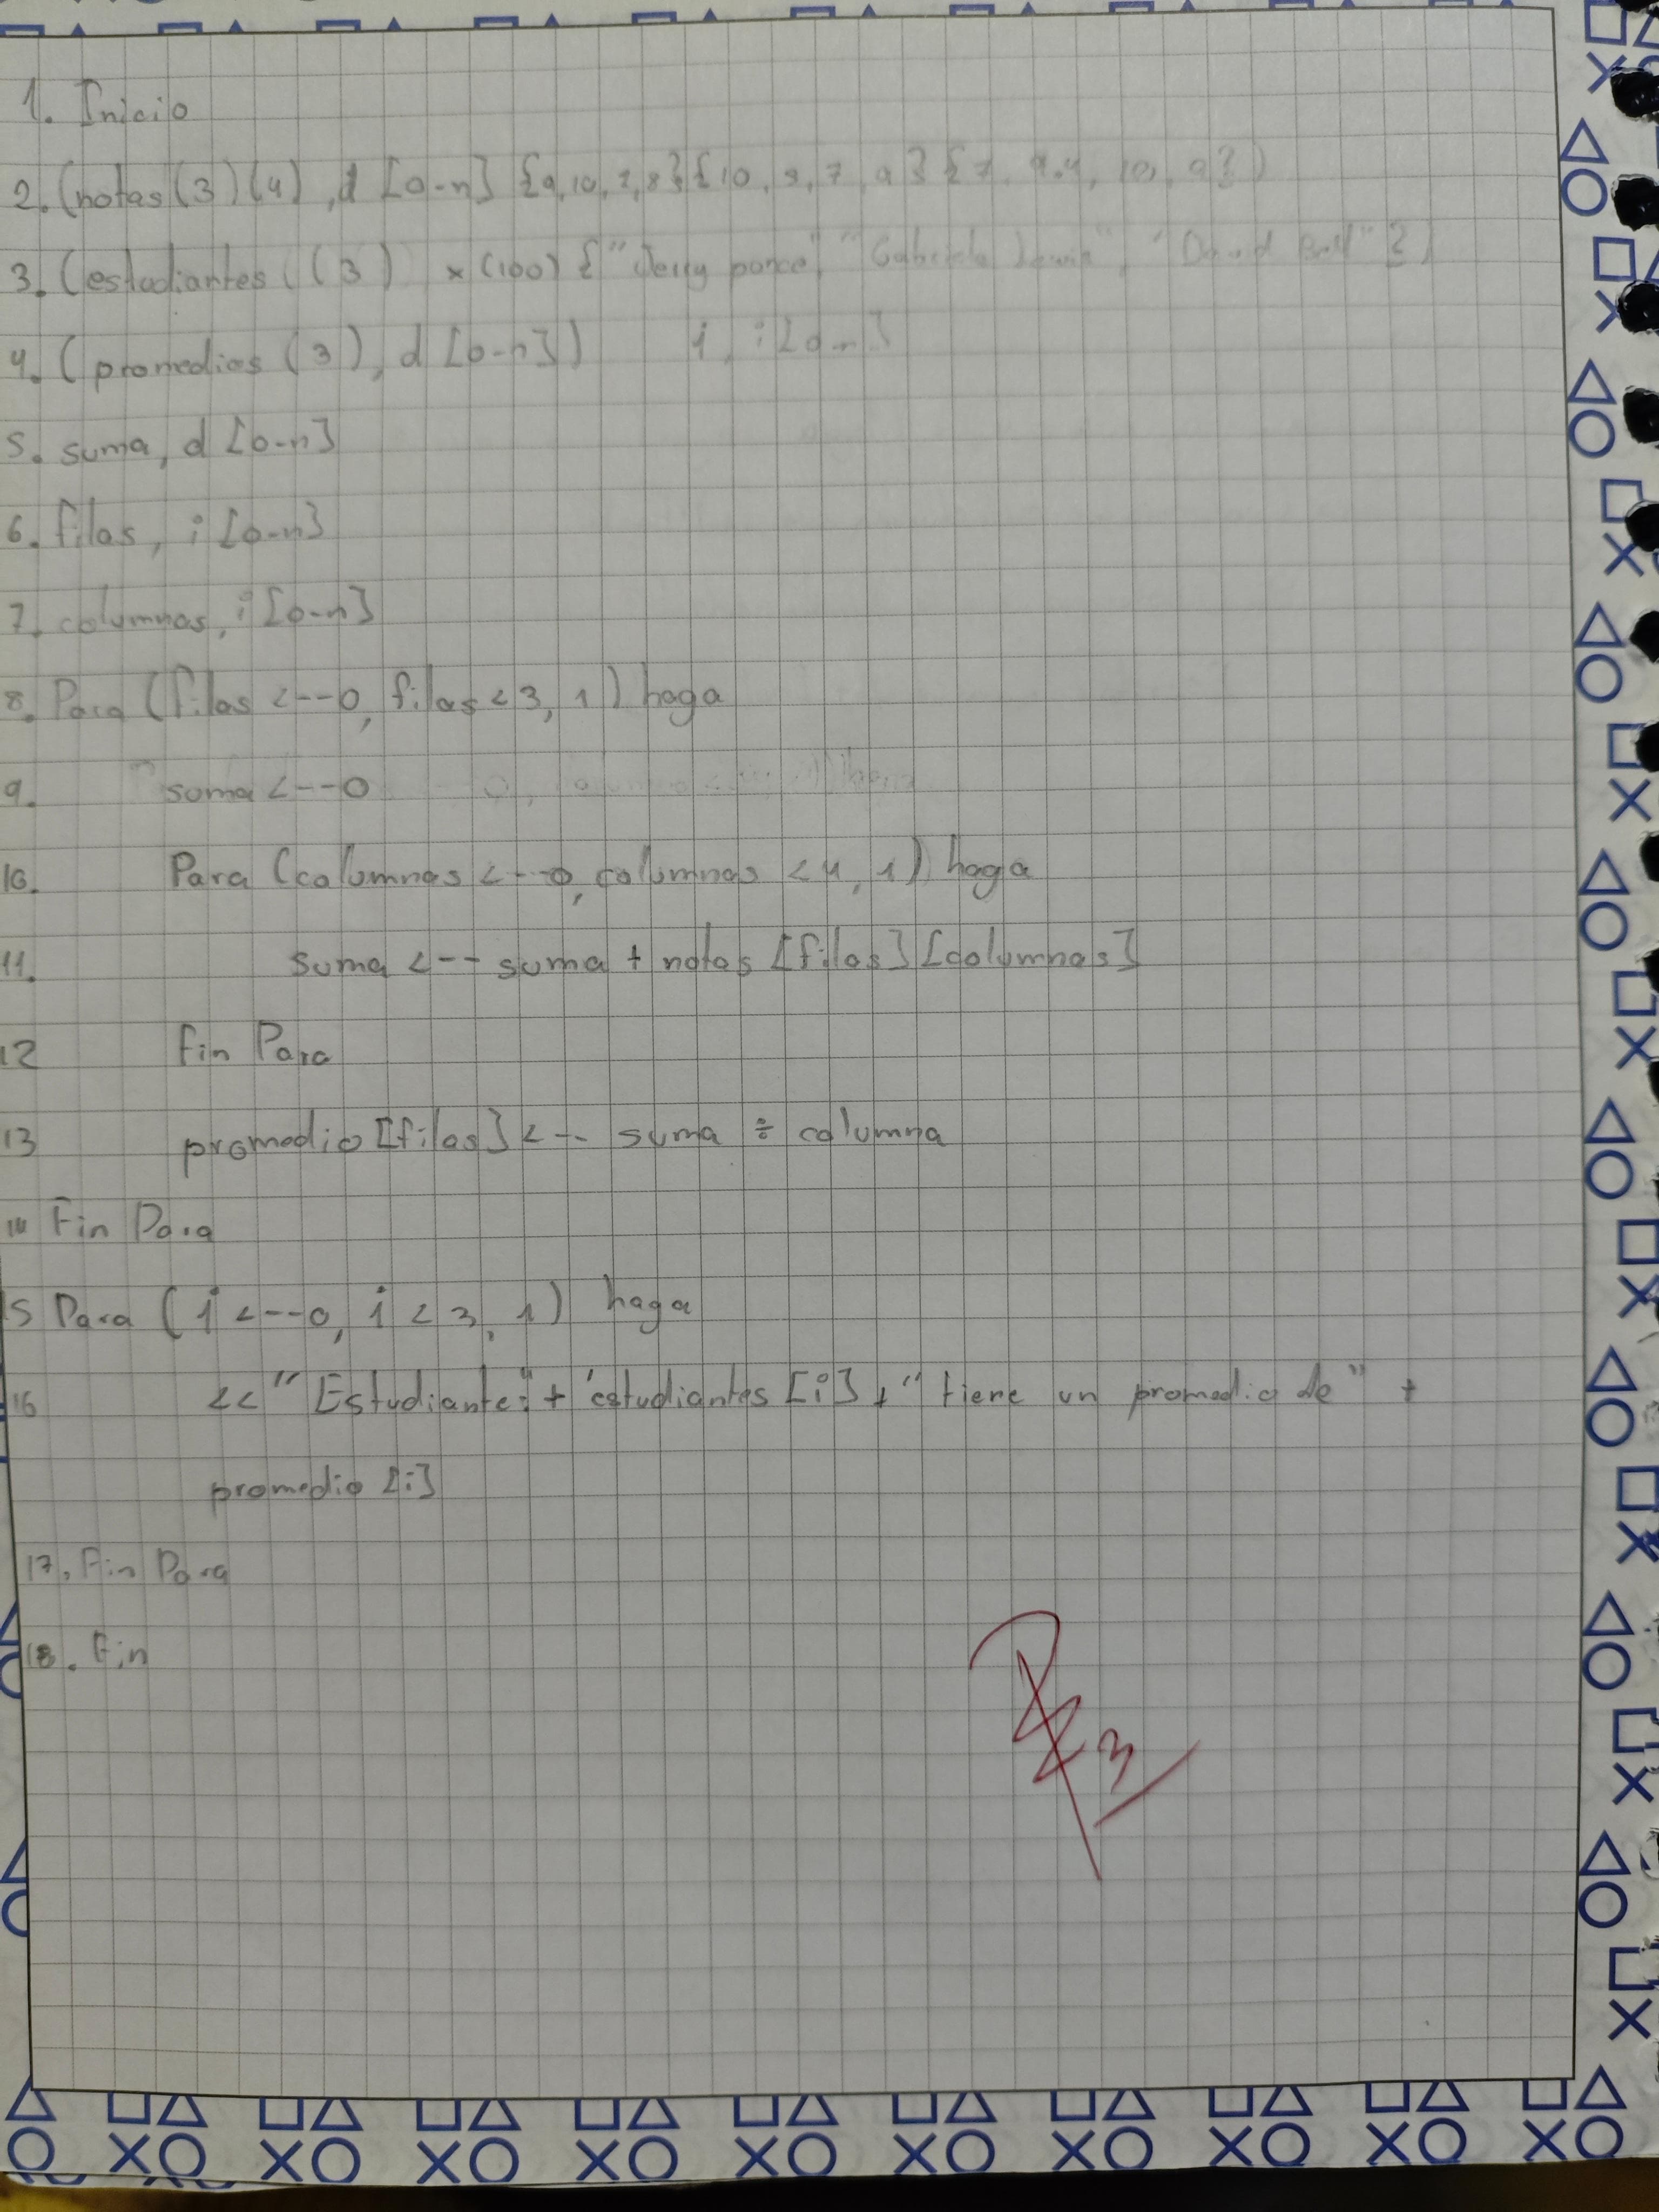 1. Inicio
2. (notas (3) (4) , d [0-n] {9,10,7,8}{10, 9, 7, 9}{7, 9.4, 10, 9})
3. (estudiantes ((3) x (100) {"Jerry ponce", "Gabriela "David Bell"})
4. (promedios (3), d [0-n]) i, i [0-n]
5. suma, d [0-n]
6. filas, i [0-n]
7. columnas, i [0-n]
8. Para (filas <--0, filas < 3, 1) haga
9. suma <--0
10. Para (columnas <--0, columnas < 4, 1) haga
11. suma <-- suma + notas [filas] [columnas]
12 Fin Para
13 promedio [filas] <-- suma ÷ columna
14 Fin Para
15 Para (i <--0, i < 3, 1) haga
16 << "Estudiante:" + estudiantes [i] + "tiene un promedio de" +
promedio [i]
17. Fin Para
18. Fin
3